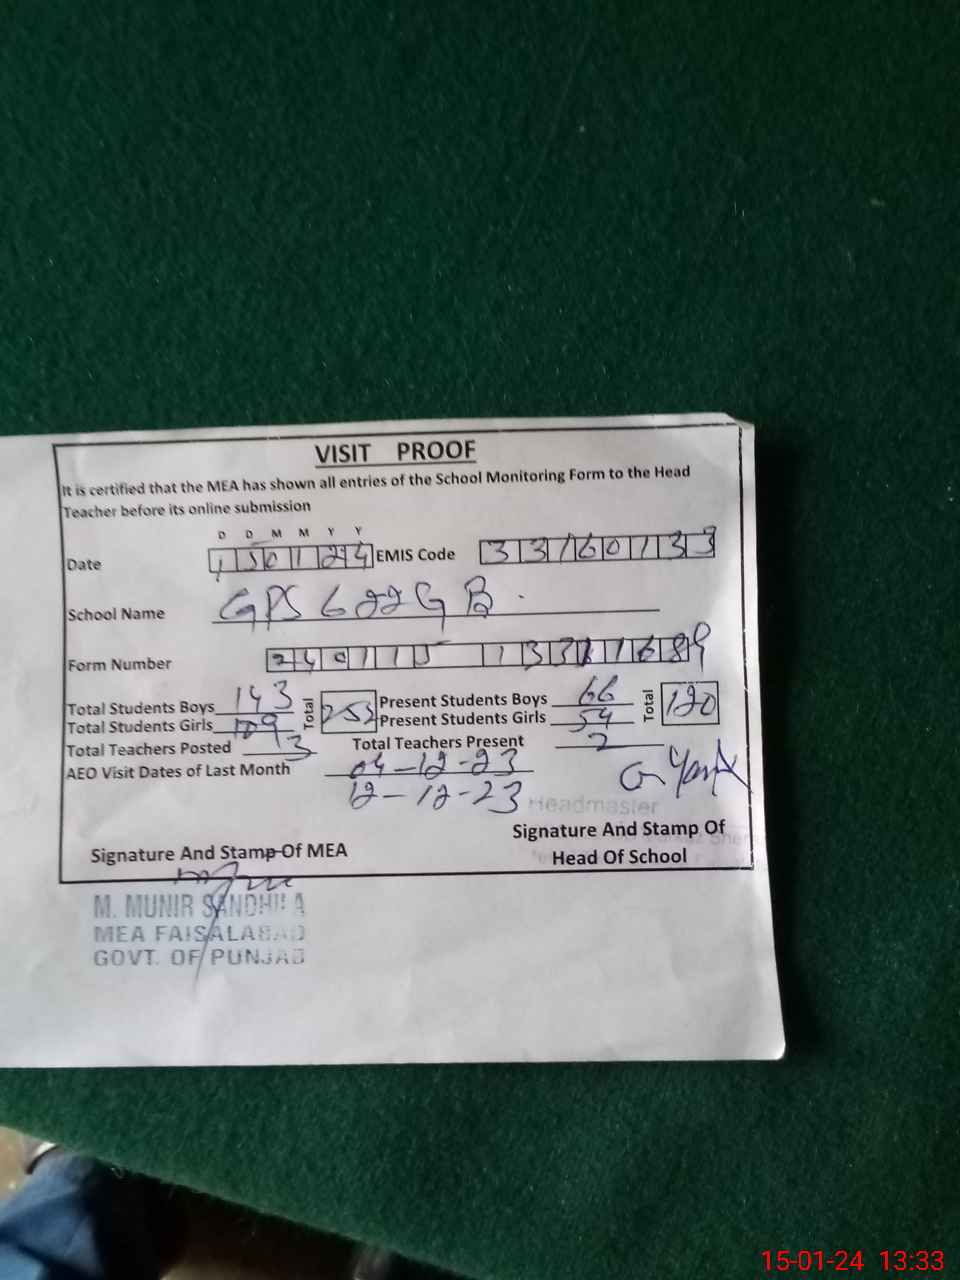 VISIT PROOF
It is certified that the MEA has shown all entries of the School Monitoring Form to the Head
Teacher before its online submission
D D M M Y Y
Date 150124 EMIS Code 33160133
School Name GPS 622 GB.
Form Number
Total Students Boys 143 Total 252 Present Students Boys 66 Total 120
Total Students Girls 109 Present Students Girls 54
Total Teachers Posted 3 Total Teachers Present 2
AEO Visit Dates of Last Month 04-12-23
12-12-23
Headmaster
Signature And Stamp Of
Head Of School
Signature And Stamp Of MEA
M. MUNIR SANDHILA
MEA FAISALABAD
GOVT. OF PUNJAB
15-01-24 13:33